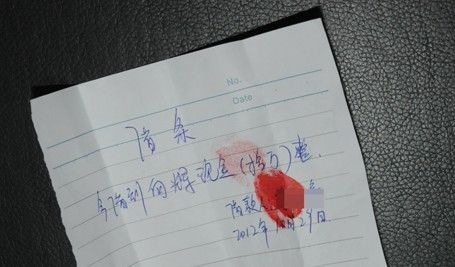 No.
Date
借条
今借到何辉现金(拾万)整.
借款人
2012年10月29日.